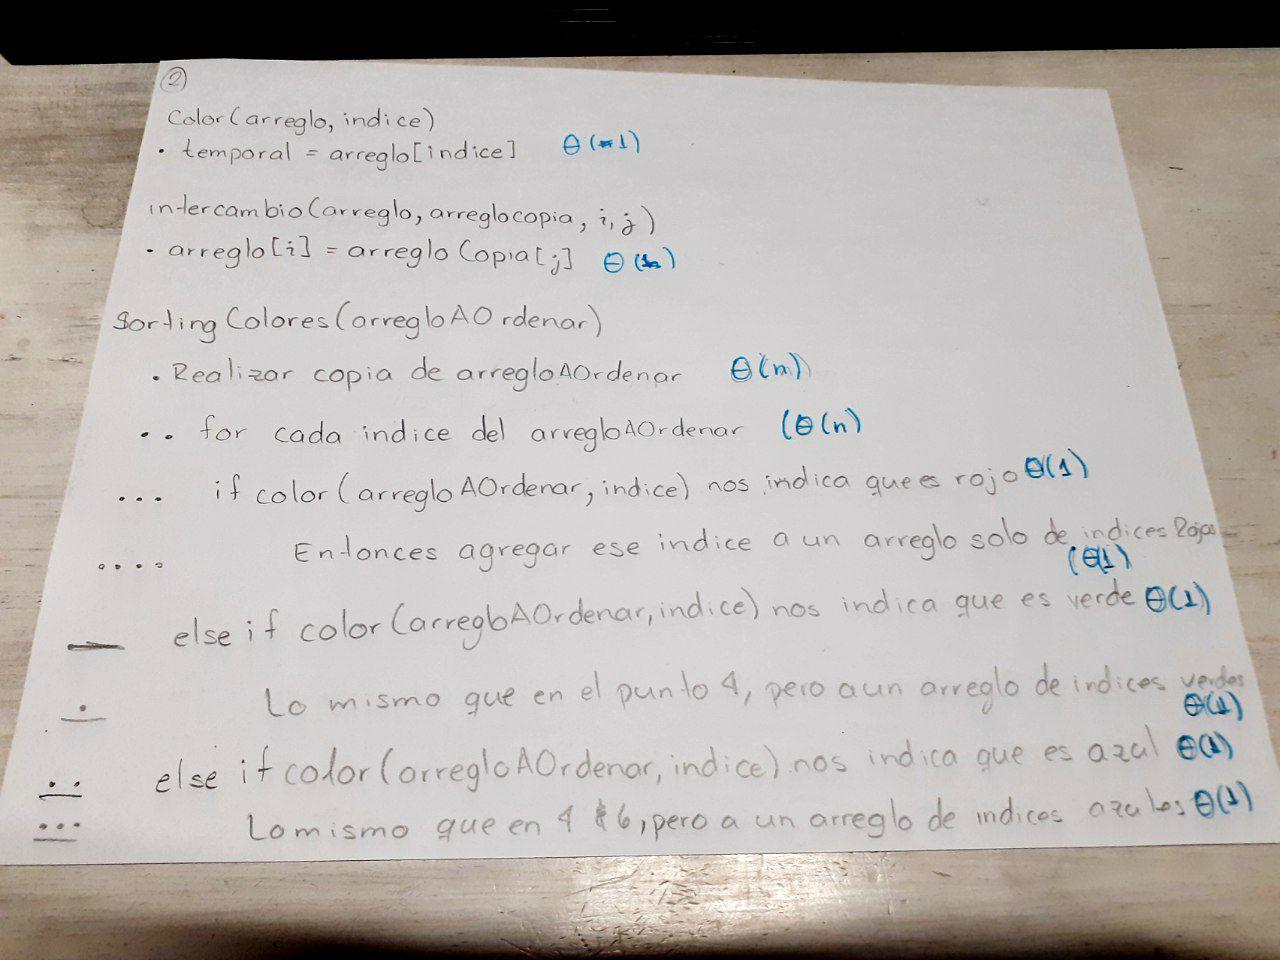 2
Color(arreglo, indice)
• temporal = arreglo[indice] Θ(1)
intercambio(arreglo, arreglocopia, i, j)
• arreglo[i] = arregloCopia[j] Θ(1)
Sorting Colores(arregloAOrdenar)
• Realizar copia de arregloAOrdenar Θ(n)
•• for cada indice del arregloAOrdenar (Θ(n)
••• if color(arregloAOrdenar, indice) nos indica que es rojo Θ(1)
•••• Entonces agregar ese indice a un arreglo solo de indices Rojos
(Θ(1)
— else if color(arregloAOrdenar, indice) nos indica que es verde Θ(1)
Lo mismo que en el punto 4, pero a un arreglo de indices verdes
Θ(1)
else if color(arregloAOrdenar, indice) nos indica que es azul Θ(1)
Lo mismo que en 4 & 6, pero a un arreglo de indices azules Θ(1)